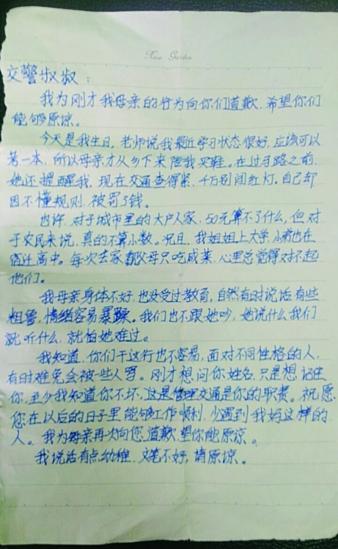 交警叔叔：
我为刚才我母亲的行为向你们道歉，希望你们
能够原谅。
今天是我生日，老师说我最近学习状态很好，应该可以
第一本，所以母亲才从乡下来陪我买鞋。在过马路之前
她还提醒我，现在交通查得紧，千万别闯红灯。自己却
因不懂规则，被罚了钱。
也许，对于城市里的大户人家，50元算不了什么，但对
于农民来说，真的不算小数，况且，我姐姐上大学，小弟也在
高中。每次去家都父母只吃咸菜，心里总觉得对不起
他们。
我母亲身体不好，也没受过教育，自然有时说话有些
粗鲁，情绪容易暴躁。我们也不跟她吵，她说什么我们
就听什么，就怕她难过。
我知道，你们干这行也不容易，面对不同性格的人，
有时难免会被一些人骂。刚才想问你姓名，只是想记住
你，至少我知道你不坏，这是管理交通是你的职责。祝愿
您在以后的日子里能够工作顺利，少遇到我妈这样的
人。我为母亲再次向您道歉，望你能原谅。
我说话有点幼稚，文笔不好，请原谅。